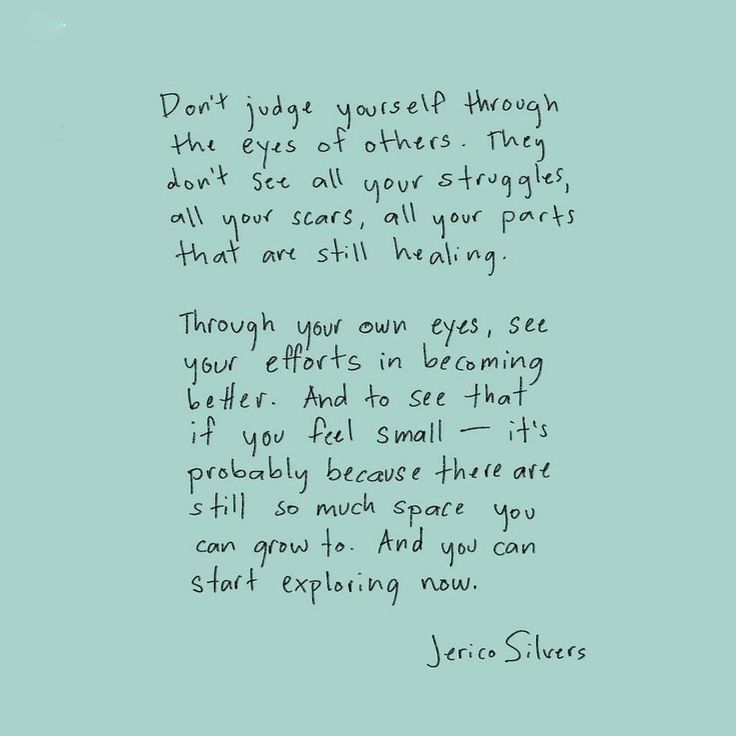 Don't judge yourself through
the eyes of others. They
don't see all your struggles,
all your scars, all your parts
that are still healing.
Through your own eyes, see
your efforts in becoming
better. And to see that
if you feel small — it's
probably because there are
still so much space you
can grow to. And you can
start exploring now.
Jerico Silvers